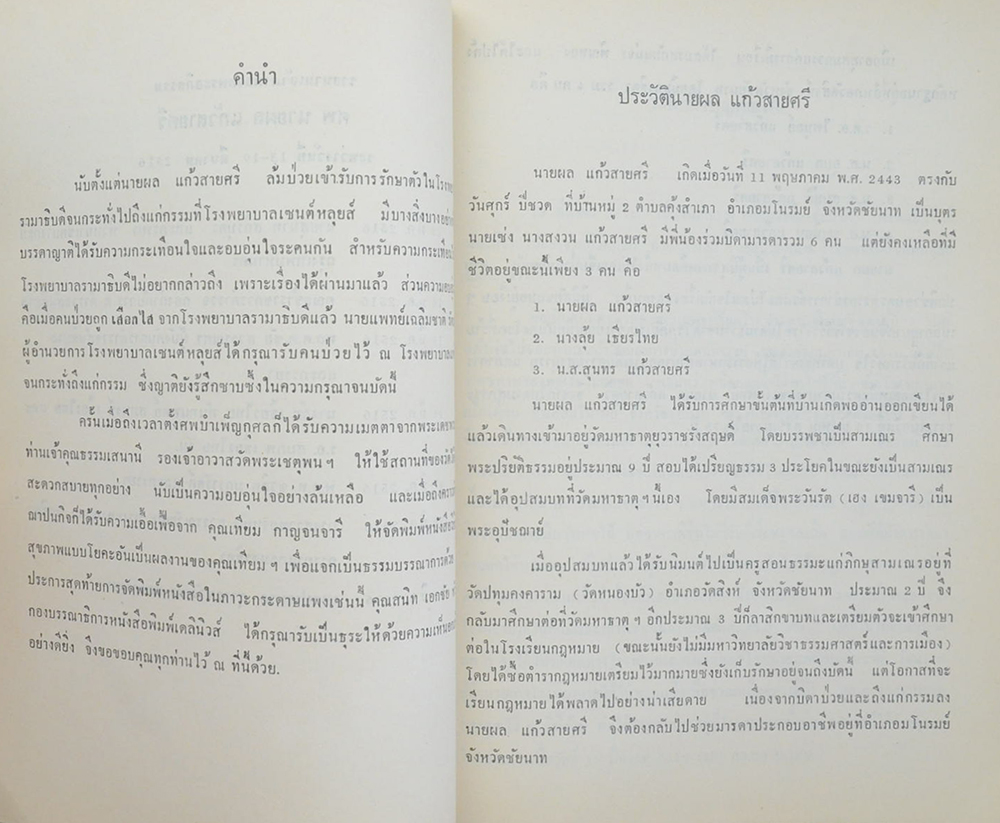 คำนำ
นับตั้งแต่นายผล แก้วสายศรี ล้มป่วยเข้ารับการรักษาตัวในโรงพย
รามาธิบดีจนกระทั่งไปถึงแก่กรรมที่โรงพยาบาลเซนต์หลุยส์ มีบางสิ่งบางอย่าง
บรรดาญาติได้รับความกระเทือนใจและอบอุ่นใจระคนกัน สำหรับความกระเทือน
โรงพยาบาลรามาธิบดีไม่อยากกล่าวถึง เพราะเรื่องได้ผ่านมาแล้ว ส่วนความอบอุ่น
คือเมื่อคนป่วยถูกเสือกไสจากโรงพยาบาลรามาธิบดีแล้ว นายแพทย์เฉลิมชาติ
ผู้อำนวยการโรงพยาบาลเซนต์หลุยส์ได้กรุณารับคนป่วยไว้ ณ โรงพยาบาล
จนกระทั่งถึงแก่กรรม ซึ่งญาติยังรู้สึกซาบซึ้งในความกรุณาจนบัดนี้
ครั้นเมื่อถึงเวลาตั้งศพบำเพ็ญกุศลก็ได้รับความเมตตาจากพระเดช
ท่านเจ้าคุณธรรมเสนานี รองเจ้าอาวาสวัดพระเชตุพนฯ ให้ใช้สถานที่ของวัด
สะดวกสบายทุกอย่าง นับเป็นความอบอุ่นใจอย่างล้นเหลือ และเมื่อถึงคราว
ฌาปนกิจก็ได้รับความเอื้อเฟื้อจาก คุณเทียม กาญจนจารี ให้จัดพิมพ์หนังสือ
สุขภาพแบบโยคะอันเป็นผลงานของคุณเทียมฯ เพื่อแจกเป็นธรรมบรรณาการด้วย
ประการสุดท้ายการจัดพิมพ์หนังสือในภาวะกระดาษแพงเช่นนี้ คุณสนิท เอกชัย
กองบรรณาธิการหนังสือพิมพ์เดลินิวส์ ได้กรุณารับเป็นธุระให้ด้วยความเห็นอก
อย่างดียิ่ง จึงขอขอบคุณทุกท่านไว้ ณ ที่นี้ด้วย.
ประวัตินายผล แก้วสายศรี
นายผล แก้วสายศรี เกิดเมื่อวันที่ 11 พฤษภาคม พ.ศ. 2443 ตรงกับ
วันศุกร์ ปีชวด ที่บ้านหมู่ 2 ตำบลคุ้งสำเภา อำเภอมโนรมย์ จังหวัดชัยนาท เป็นบุตร
นายเซ่ง นางสงวน แก้วสายศรี มีพี่น้องร่วมบิดามารดารวม 6 คน แต่ยังคงเหลือที่มี
ชีวิตอยู่ขณะนี้เพียง 3 คน คือ
1. นายผล แก้วสายศรี
2. นางลุ้ย เธียรไทย
3. น.ส.สุนทร แก้วสายศรี
นายผล แก้วสายศรี ได้รับการศึกษาขั้นต้นที่บ้านเกิดพออ่านออกเขียนได้
แล้วเดินทางเข้ามาอยู่วัดมหาธาตุยุวราชรังสฤษดิ์ โดยบรรพชาเป็นสามเณร ศึกษา
พระปริยัติธรรมอยู่ประมาณ 9 ปี สอบได้เปรียญธรรม 3 ประโยคในขณะยังเป็นสามเณร
และได้อุปสมบทที่วัดมหาธาตุฯนี้เอง โดยมีสมเด็จพระวันรัต (เฮง เขมจารี) เป็น
พระอุปัชฌาย์
เมื่ออุปสมบทแล้วได้รับนิมนต์ไปเป็นครูสอนธรรมะแก่ภิกษุสามเณรอยู่ที่
วัดปทุมคงคาราม (วัดหนองบัว) อำเภอวัดสิงห์ จังหวัดชัยนาท ประมาณ 2 ปี จึง
กลับมาศึกษาต่อที่วัดมหาธาตุฯ อีกประมาณ 3 ปีก็ลาสิกขาบทและเตรียมตัวจะเข้าศึกษา
ต่อในโรงเรียนกฎหมาย (ขณะนั้นยังไม่มีมหาวิทยาลัยวิชาธรรมศาสตร์และการเมือง)
โดยได้ซื้อตำรากฎหมายเตรียมไว้มากมายซึ่งยังเก็บรักษาอยู่จนถึงบัดนี้ แต่โอกาสที่จะ
เรียนกฎหมายได้พลาดไปอย่างน่าเสียดาย เนื่องจากบิดาป่วยและถึงแก่กรรมลง
นายผล แก้วสายศรี จึงต้องกลับไปช่วยมารดาประกอบอาชีพอยู่ที่อำเภอมโนรมย์
จังหวัดชัยนาท